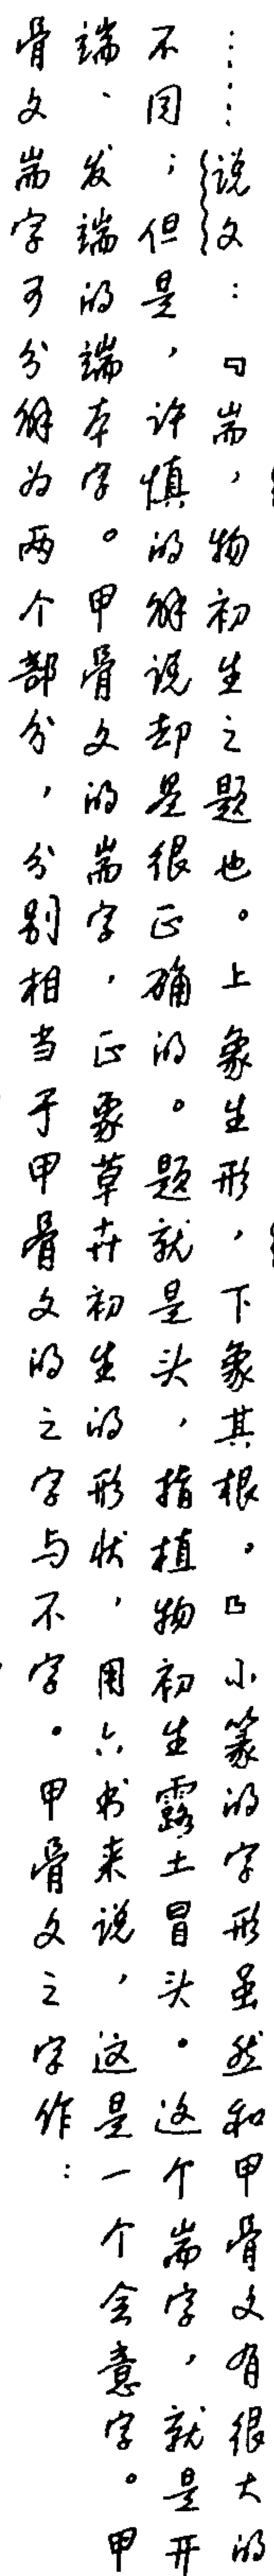 ……说文：「耑，物初生之题也。上象生形，下象其根。」小篆的字形虽然和甲骨文有很大的
不同；但是，许慎的解说却是很正确的。题就是头，指植物初生露土冒头。这个耑字，就是开
端、发端的端本字。甲骨文的耑字，正象草卉初生的形状，用六书来说，这是一个会意字。甲
骨文耑字可分解为两个部分，分别相当于甲骨文的之字与不字。甲骨文之字作：